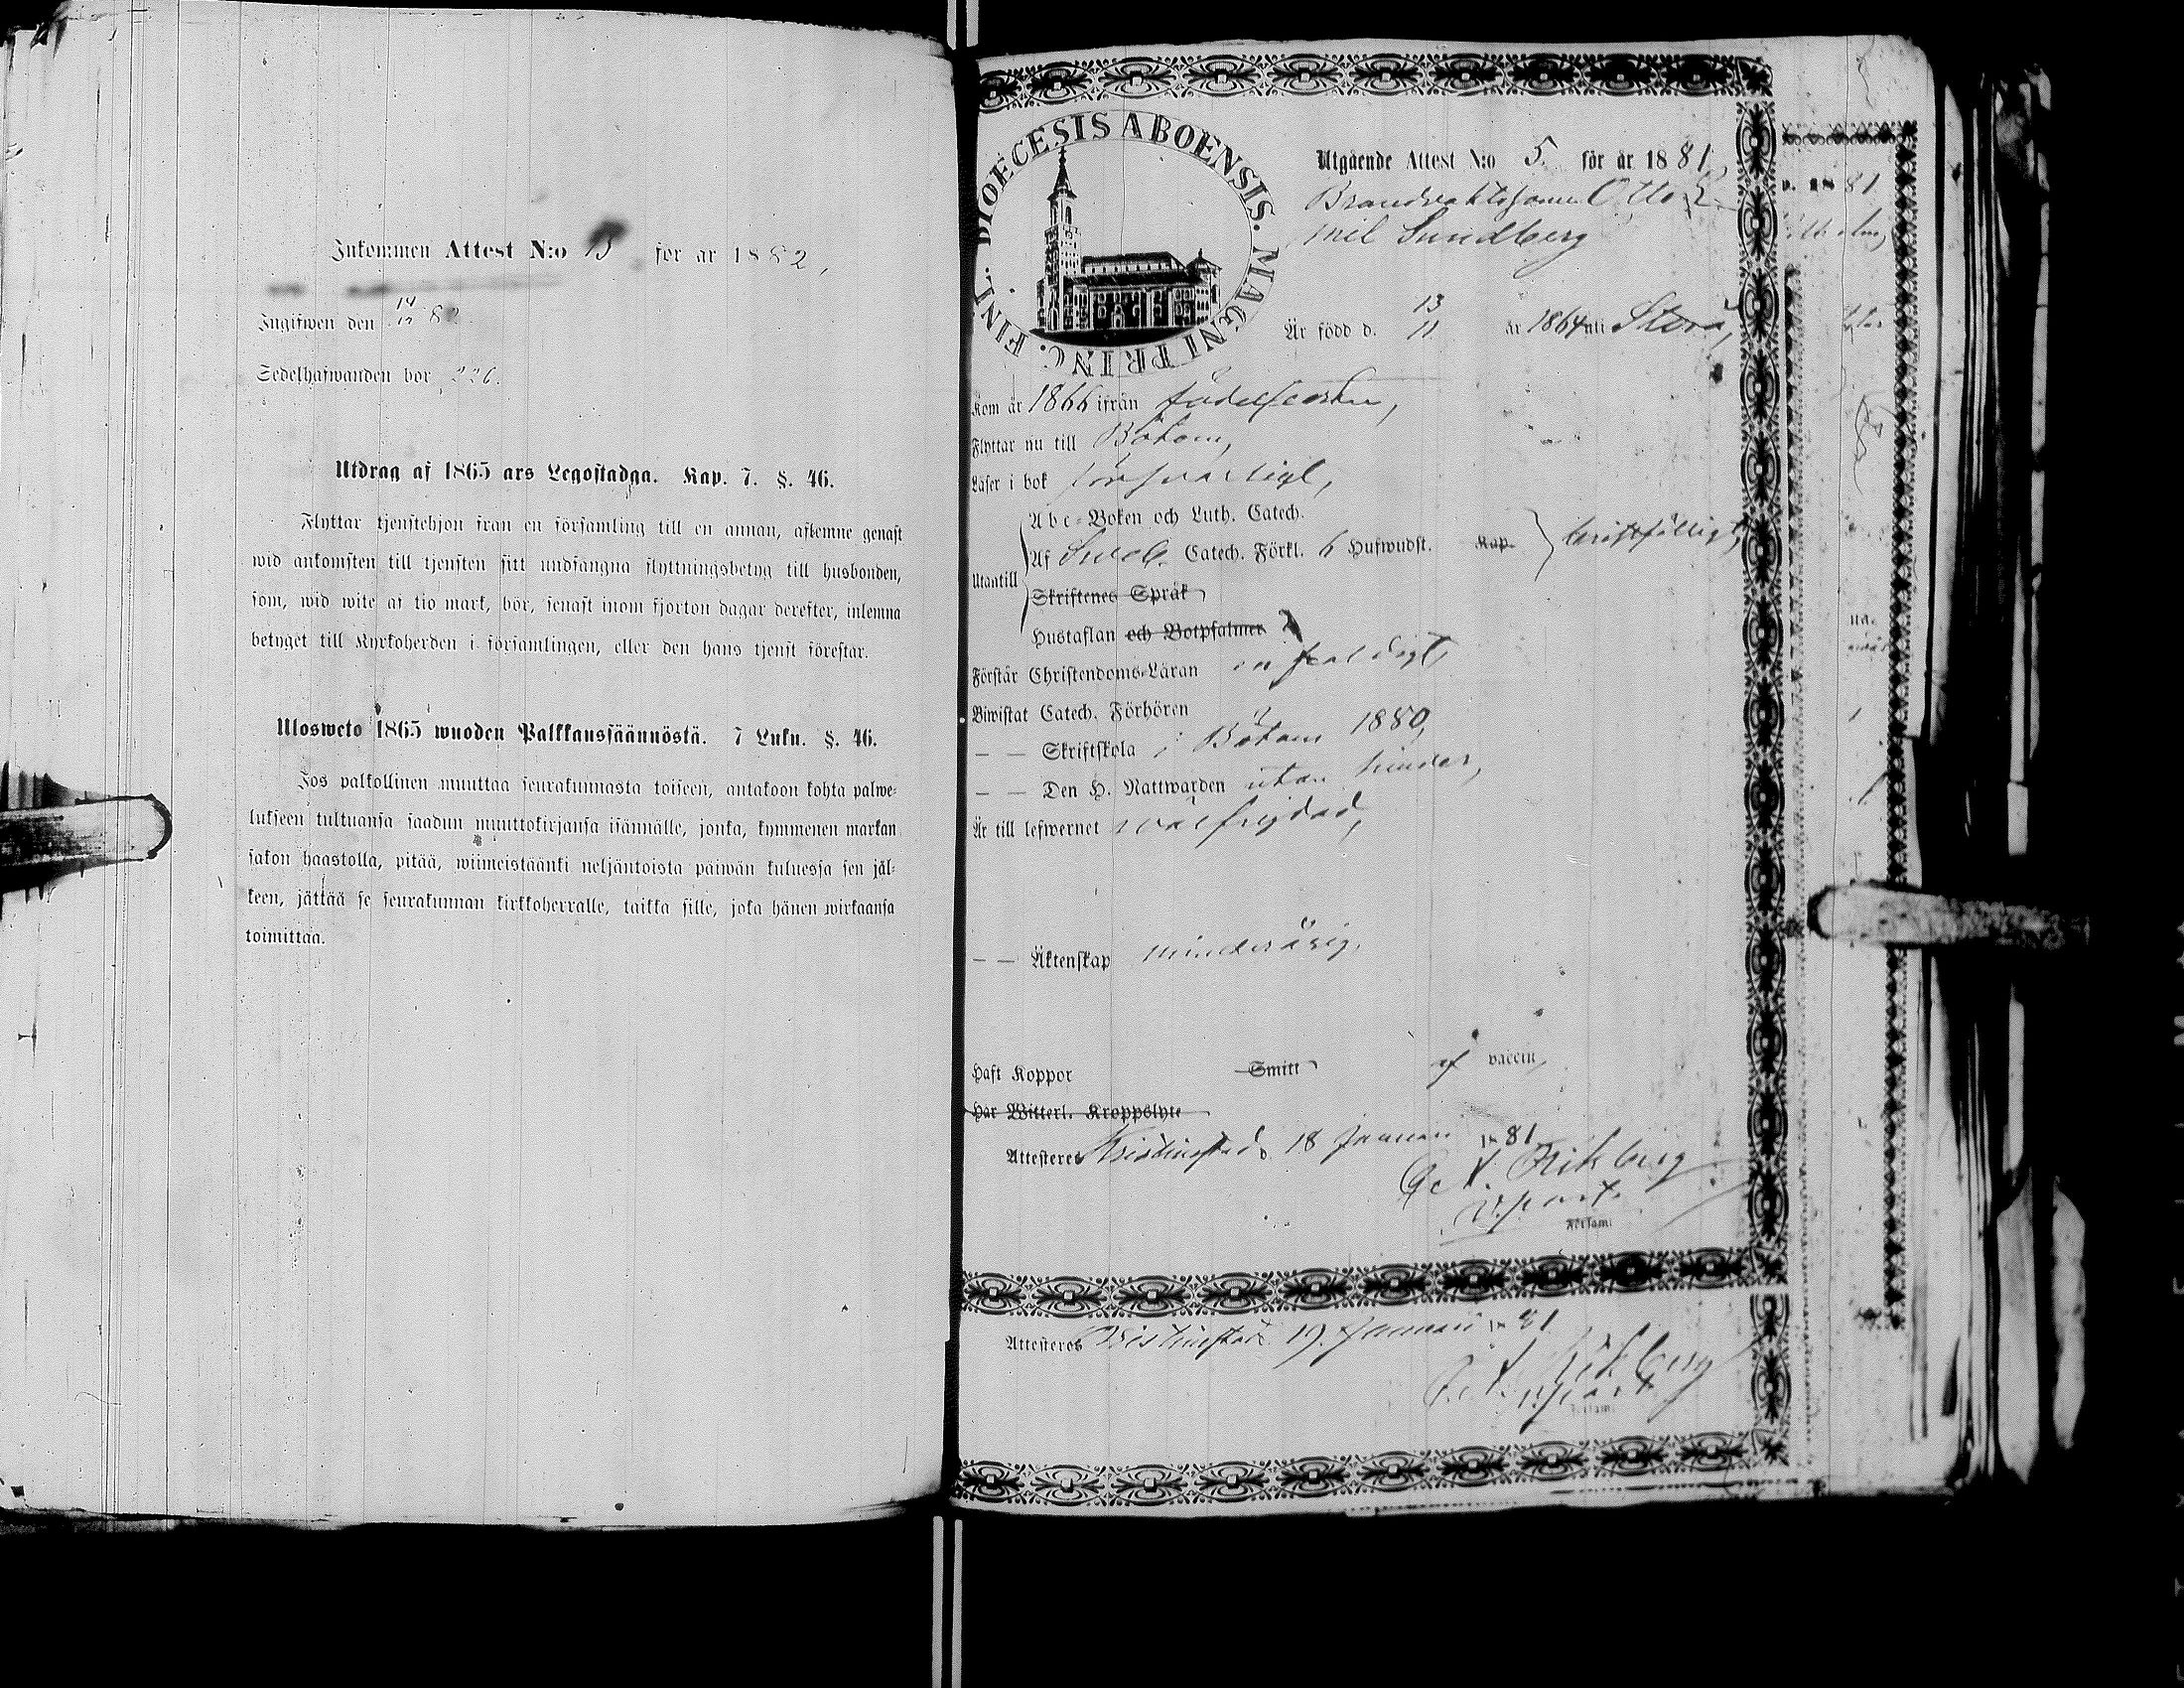 Inkommen Attest N:o 13 for år 1882,
Ingifwen den 14/12 82
Sedelhafwanden bor 226.
Utdrag af 1865 ars Legostadga. Kap. 7. §. 46.
Flyttar tjenstehjon från en församling till en annan, aflemne genast
wid ankomsten till tjensten sitt undfångna flyttningsbetyg till husbonden,
som, wid wite af tio mark, bör, senast inom fjorton dagar derefter, inlemna
betyget till Kyrkoherden i församlingen, eller den hans tjenst förestår.
Ulosweto 1865 wuoden Palkkaussäännöstä. 7 Luku. §. 46.
Jos palkollinen muuttaa seurakunnasta toiseen, antakoon kohta palwe-
lukseen tultuansa saadun muuttokirjansa isännälle, jonka, kymmenen markan
sakon haastolla, pitää, wiimeistäänki neljäntoista päiwän kuluessa sen jäl-
keen, jättää se seurakunnan kirkkoherralle, taikka sille, joka hänen wirkaansa
toimittaa.
DIOECESIS ABOENSIS. MAGNI PRINC. FINL.
Utgående Attest N:o 5. för år 1881
Brandvaktssonen Otto E-
mil Sundberg
Är född d. 13/11 år 1864 uti Storå,
Kom år 1866 ifrån födelseorten,
Flyttar nu till Bötom,
Läser i bok försvarligt,
Abc-Boken och Luth. Catech.
Utantill Af Sveb. Catech. Förkl. 6 Hufwudst. Kap. bristfälligt,
Skriftenes Språk
Hustaflan och Botpsalmer
Förstår Christendoms-Läran enfaldigt,
Biwistat Catech. Förhören
— — Skriftskola i Bötom 1880,
— — Den H. Nattwarden utan hinder,
Är till lefwernet välfrejdad,
— — Äktenskap minderårig.
Haft Koppor Smitt af vaccin,
Har Witterl. Kroppslyte
Attesteres Kristinestad d. 18 Januari 1881
v. past.
Församl
Attesteres Kristinestad 19. Januari 1881
v. past.